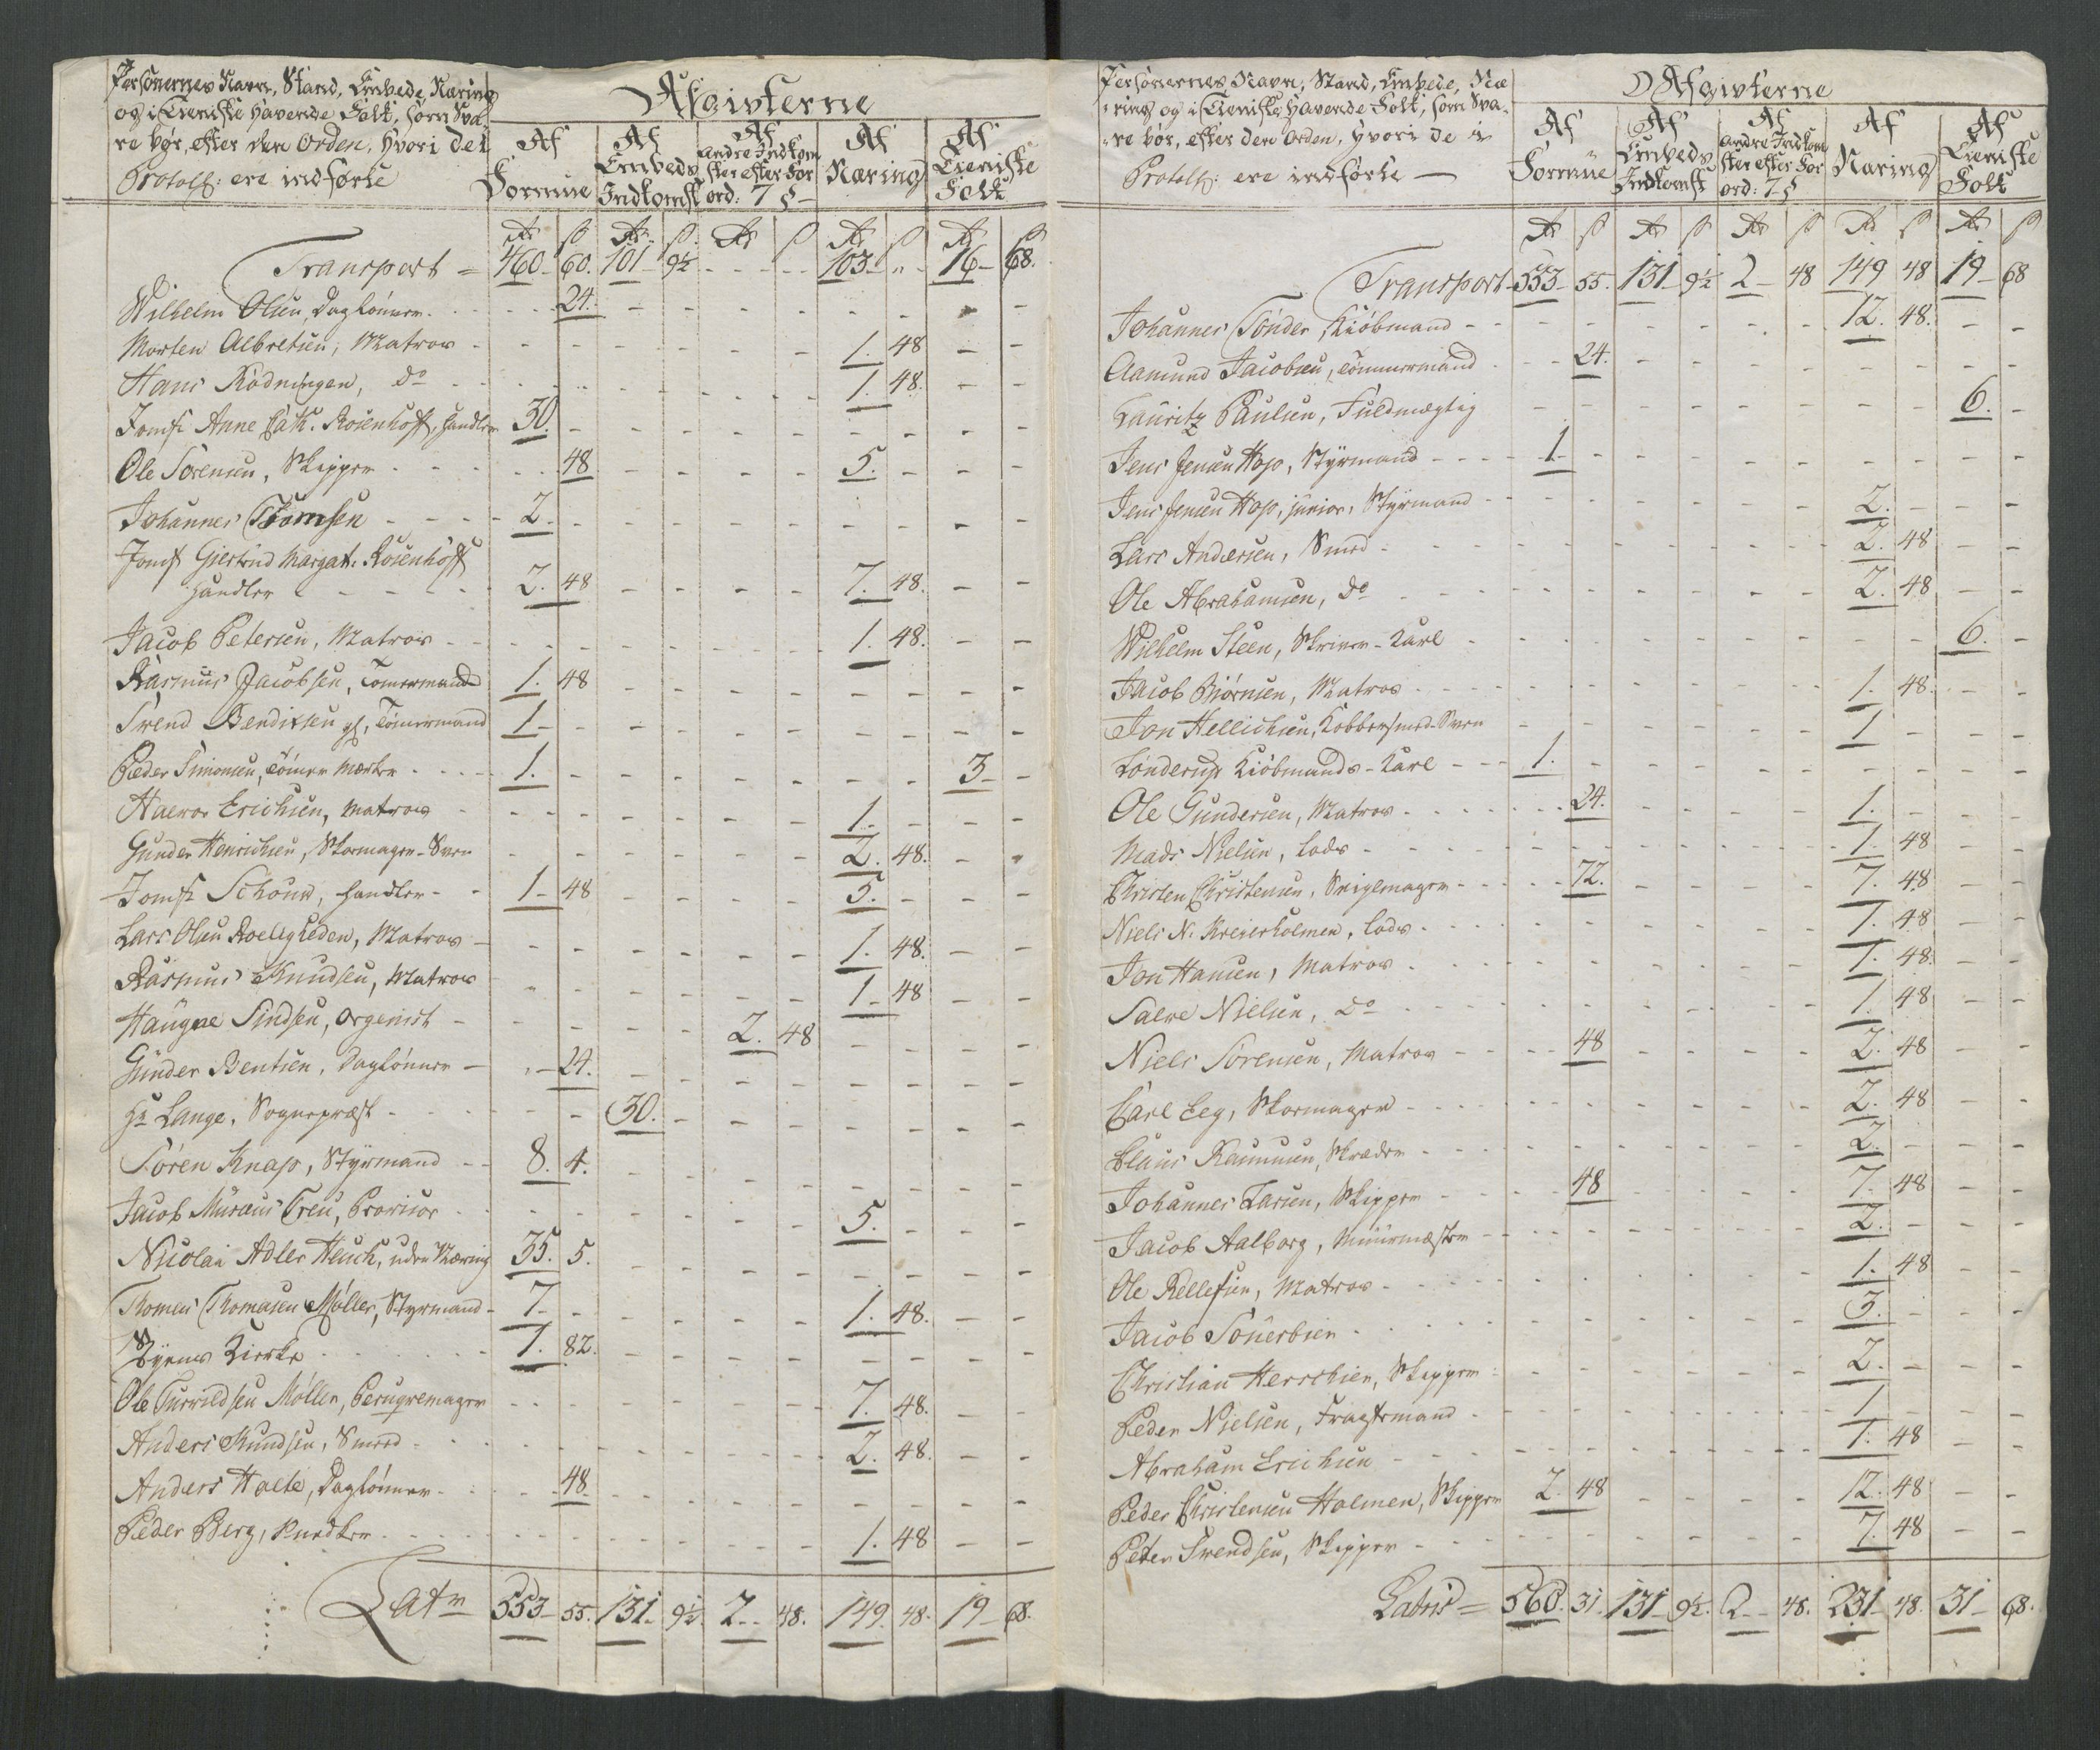 Personernes Navn, Stand, Embede, Næring
og i Tieniste havende Folk, som Sva-
re bør, efter den Orden, hvori de i
Protoll: ere indførte
Afgivterne
Af Formue
Af Embeds Indkomst
Af andre Indkomster efter Forord: 7 §
Af Næring
Af Tieniste Folk
Rd ß Rd ß Rd ß Rd ß Rd ß
Transport = 460 - 60. 101 - 9½ - - 103 - " - 16 - 68.
Wilhelm Olsen, Daglönner - 24.
Morten Albretsen, Matros - 1. 48
Hans Rödningen, do - 1. 48.
Jomfr Anne Cath. Rosenhoff, Handler 30.
Ole Sörensen, Skipper - 48 5.
Johannes Thomsen - 2.
Jomfr Giertrud Margat. Rosenhoff
Handler - 2. 48 7. 48.
Jacob Petersen, Matros - 1. 48.
Rasmus Jacobsen, Tömermand 1. 48
Svend Bendixsen gl, Tömermand 1 -
Peder Simonsen, Tömer Mærker - 1. 3 -
Halvor Erichsen, Matros - 1. -
Gunder Henrichsen, Skomager-Sven 2. 48.
Jomfr Schouw, Handler - 1 - 48 5.
Lars Olsen Roeligheden, Matros - 1. 48.
Rasmus Knudsen, Matros 1 - 48
Haugne Sindsen, Orgenist - 2. 48
Gunder Bentsen, Daglönner - 24.
Hr Lange, Sognepræst - 30.
Sören Knap, Styrmand - 8. 4.
Jacob Musæus Treu, Provisor - 5.
Nicolai Adler Heuch, uden Næring 35. 5.
Thomas Thomasen Möller, Styrmand - 7 - 1. 48.
Byens Kierke - 1. 82.
Ole Turvildsen Möller, Peruqvemager - 7. 48.
Anders Knudsen, Smed - 2. 48.
Anders Halte, Daglönner - 48.
Peder Berg, Snedker - 1. 48
Latr 553 - 55. 131 - 9½. 2 - 48. 149. 48. 19 - 68.
Personernes Navn, Stand, Embede, Næ-
ring og i Tieniste havende Folk, som Sva-
re bør, efter den Orden, hvori de i
Protoll: ere indførte -
Afgivterne
Af Formue
Af Embeds Indkomst
Af andre Indkomster efter Forord: 7 §
Af Næring
Af Tieniste Folk
Rd ß Rd ß Rd ß Rd ß Rd ß
Transport - 553 - 55. 131 - 9½ 2 - 48 149 48 19 - 68
Johannes Tönder, Kiöbmand - 12. 48.
Aamund Jacobsen, Tömmermand - 24.
Lauritz Paulsen, Fuldmægtig 6. -
Jens Jensen Hop, Styrmand - 1 -
Jens Jensen Hop, junior, Styrmand - 2. -
Lars Andersen, Smed - 2. 48
Ole Abrahamsen, do - 2. 48
Wilhelm Steen, Skriver-Karl - 6. -
Jacob Biörnsen, Matros - 1. 48.
Jon Hellichsen, Kobbersmed-Sven 1 -
Lönderup Kiöbmands-Karl - 1.
Ole Gundersen, Matros - 24. 1. -
Mads Nielsen, Lods - 1. 48
Christen Christensen, Seiglmager - 72. 7. 48
Niels N. Kreierholmen, Lods - 1. 48
Jon Hansen, Matros - 1. 48.
Salve Nielsen, do - 1. 48
Niels Sörensen, Matros - 48 2. 48
Carl Eeg, Skomager - 2. 48
Claus Rasmusen, Skræder - 2. -
Johannes Larsen, Skipper - 48 7. 48
Jacob Aalborg, Muurmæster - 2. -
Ole Kellefsen, Matros - 1. 48
Jacob Sönerbien - 3. -
Christian Herschien, Skipper - 2. -
Peder Nielsen, Fragtemand - 1 -
Abraham Erichsen - 1. 48
Peder Christensen Holmen, Skipper 2. 48 12. 48
Peter Svendsen, Skipper - 7. 48
Latris = 560. 31. 131 - 9½. 2 - 48. 231 - 48. 31 - 68.